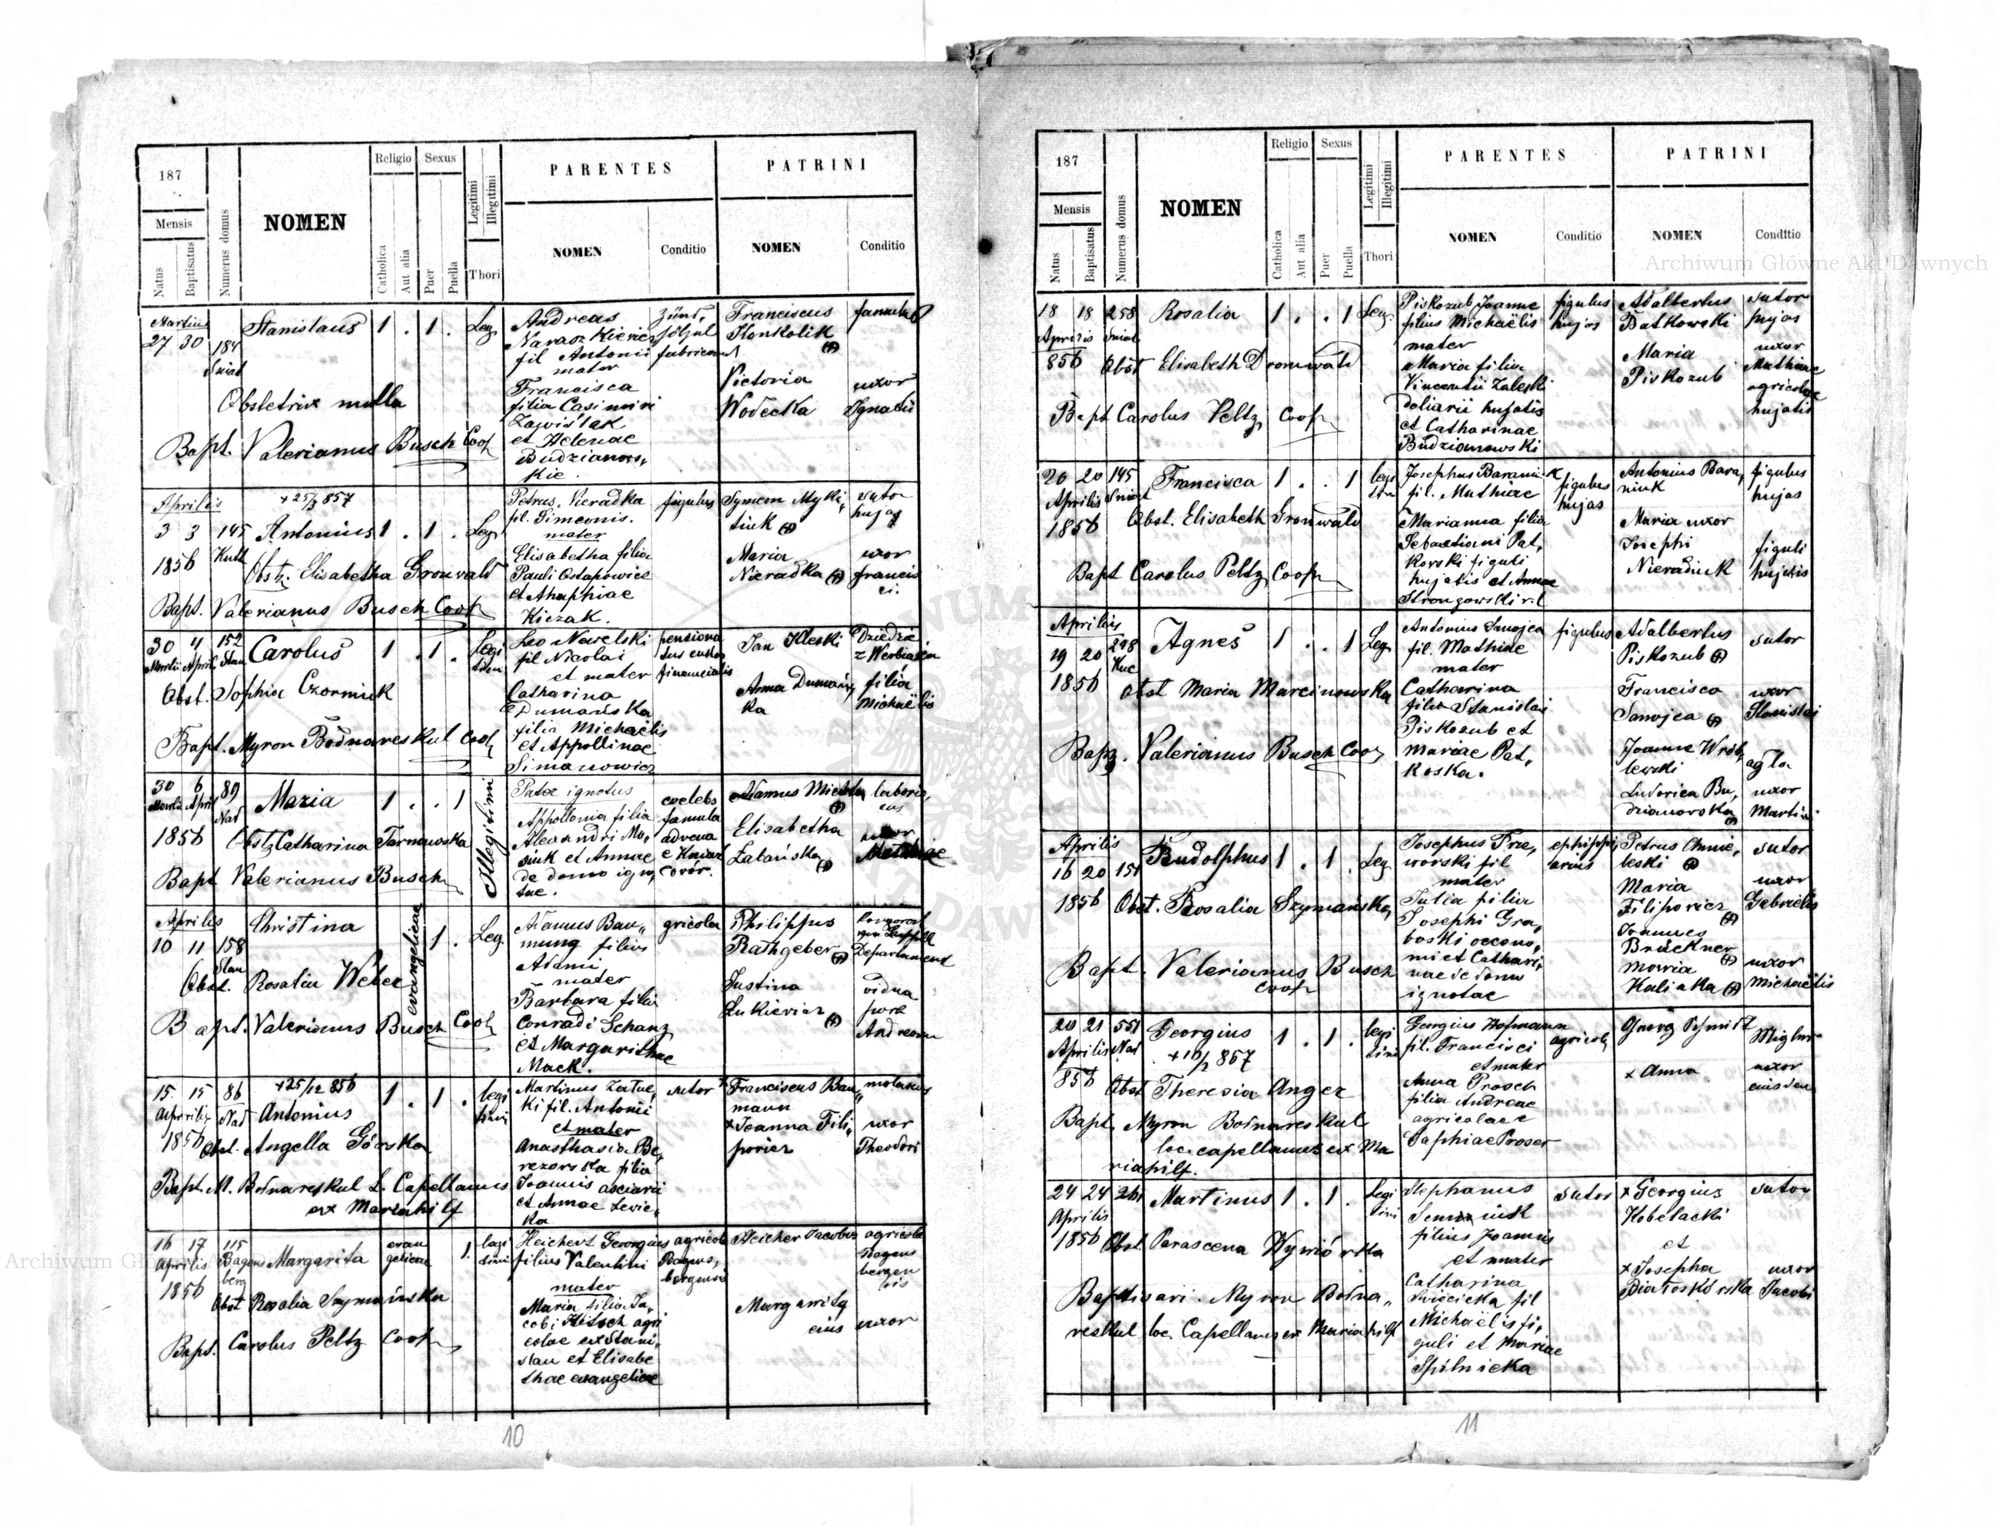 187
Mensis
Natus
Baptisatus
Numerus domus
NOMEN
Religio
Catholica
Aut alia
Sexus
Puer
Puella
Legitimi
Illegitimi
Thori
PARENTES
NOMEN
Conditio
PATRINI
NOMEN
Conditio
Martius
27 30 184 Stanislaus 1 . 1 . Leg
Sniat
Obstetrix nulla
Bapt. Valerianus Busch Coop
Andreas
fil Antonii
mater
Francisca
filia Casimiri
et Helenae
Budzianows,
kie.
Franciscus
Konkolik
Victoria
Wodecka
famulus
uxor
Ignatii
Aprilis
+ 25/3 857
3 3 145 Antonius 1 . 1 . Leg
1856 Kutt
Obst. Elisabetha Gronwald
Bapt. Valerianus Busch Coop
Petrus Nieradka
fil. Simeonis.
mater
Elisabetha filia
Pauli Ostapowicz
et Ahaphiae
Kiczak.
figulus
Symeon Myki,
tiuk
Maria
Nieradka
sutor
hujas
uxor
francis
ci.
30 4 152 Carolus 1 . 1 . Legi
Martii April
Obst. Sophia Czorniuk
Bapt. Myron Bodnareskul Coop
Leo Nawelski
fil Nicolai
et mater
Catharina
Dumańska
filia Michaelis
et Appollinae
Simanowicz
pensiona
financialis
Jan Kleski
Anna Dumańs
ka
Dziedzic
filia
Michaelis
30 6 89 Maria 1 . . 1
Martii April Nad
1856 Obst Catharina Tarnawska
Bapt Valerianus Busch
Illegitimi
Pater ignotus
Appollonia filia
Alexandri Mo,
siuk et Annae
de domo igno,
tae.
coelebs
famula
advena
Adamus
Elisabetha
Zalańska
uxor
Aprilis
Christina
10 11 158 1 . Leg.
Stan
Obst. Rosalia Weber
Bapt. Valerianus Busch Coop
evangelicae
Adamus Bau,
mung filius
Adami
mater
Barbara filia
Conradi Schanz
et Margarithae
Mack.
gricola
Philippus
Rathgeber
Justina
Lukiewicz
Departament
vidua
post
Andream
15 15 86 + 25/12 856 1 . 1 . legi
Aprilis Nad Antonius timi
1856 Obst. Angella Górska
Bapt. M. Bodnareskul L. Capellanus
ex Mariahilf
Martinus Zatuc,
ki fil. Antonii
et mater
Anasthasia Be,
rezowska filia
Joannis asciarii
et Annae Lewic,
ka
sutor
Franciscus Bau,
mann
+ Joanna Fili,
powicz
molarius
uxor
Theodori
16 17 115 Margarita evan 1. legi
Aprilis Bagens gelicae timi
1856 berg
Obst Rosalia Szymańska
Bapt. Carolus Peltz Coop
Heichert Georgius
filius Valentini
mater
Maria filia Ja,
cobi Hitsch agri
colae ex Stani,
slau et Elisabe
thae evangelicae
agricola
Bagens,
bergensis
Heicher Jacobus
Margarita
eius uxor
agricola
Bagens
bergen
sis
10
187
Mensis
Natus
Baptisatus
Numerus domus
NOMEN
Religio
Catholica
Aut alia
Sexus
Puer
Puella
Legitimi
Illegitimi
Thori
PARENTES
NOMEN
Conditio
PATRINI
NOMEN
Conditio
18 18 258 Rosalia 1 . . 1 Leg
Aprilis Sniat
856 Obst Elisabeth Dronwald
Bapt Carolus Peltz Coop
Piskozub Joanne
filius Michaëlis
mater
Maria filia
Vincentii Zaleski
doliarii hujatis
et Catharinae
Budzianowski
figulus
hujas
Adalbertus
Batkowski
Maria
Piskozub
sutor
hujas
uxor
Mathiae
agricolae
hujatis
20 20 145 Francisca 1 . . 1 legi
Aprilis Sniat timi
1856 Obst. Elisabeth Gronwald
Bapt Carolus Peltz, Coop
Josephus Baraniuk
fil. Mathiae
Marianna filia
Sebastiani Pat,
kowski figuli
hujatis et Annae
figulus
hujas
Antonius Bara,
niuk
Maria uxor
Josephi
Nieradiuk
figulus
hujas
figuli
hujatis
Aprilis
19 20 298 Agnes 1 . . 1 Leg
1856 Obst Maria Marcinowska
Bapt. Valerianus Busch Coop
Antonius Smojca
fil. Mathiae
mater
Catharina
filia Stanislai
Piskozub et
Mariae Pat,
koska.
figulus
Adalbertus
Piskozub
Francisca
Samojca
Joanne Wrób,
lewski
Ludovica Bu,
dzianowska
sutor
uxor
Stanislai
uxor
Martini
Aprilis
16 20 151 Rudolphus 1 . 1 . Leg
1856 Obst. Rosalia Szymańska
Bapt. Valerianus Busch
Coop
Josephus Prze,
worski fil
mater
Julia filia
Josephi Gra,
boski oecono,
mi et Cathari,
nae de domo
ignotae
ephippi,
arius
Petrus Chmie,
leski
Maria
Filipowicz
Joannes
Brückner
Maria
Kaliaka
sutor
uxor
Gabrielis
uxor
Michaëlis
20 21 551 Georgius 1 . 1 . legi
Aprilis Nad + 10/2 857 timi
856 Obst Theresia Anger
Bapt Myron Bodnareskul
loc. capellanus ex Ma
riahilf.
Georgius Hofmann
fil. Francisci
et mater
Anna Prosch
filia Andreae
agricolae et
Saphiae Proser
agricola
Georg Schmidt
+ Anna
uxor
24 24 261 Martinus 1 . 1 . Legi
Aprilis timi
1856 Obst Parascena Wywiórka
Baptisavi Myron Bodna,
reskul loc. Capellanus ex Mariahilf
Stephanus
filius Joannis
et mater
Catharina
Swiścicka fil
Michaëlis fi,
guli et Mariae
Spilnicka
sutor
+ Georgius
Kobelacki
et
+ Josepha
Białoskórska
sutor
uxor
Jacobi
11
Archiwum Główne Akt Dawnych